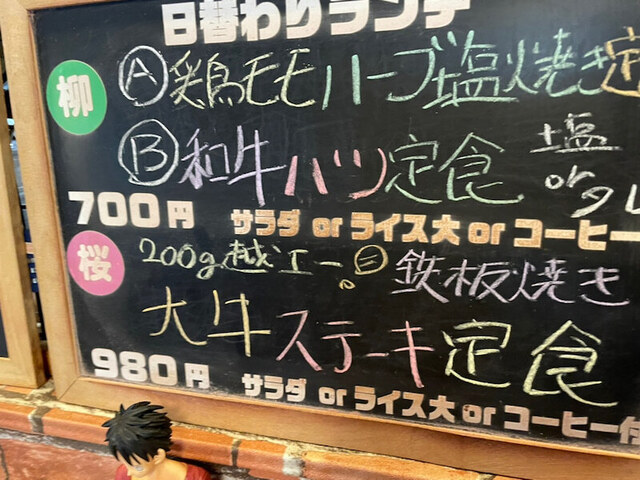 日替わりランチ
柳
Ⓐ鶏モモハーブ塩焼き定
Ⓑ和牛ハツ定食 塩 or タレ
700円 サラダ or ライス大 or コーヒー
桜
200g 鉄板焼き
大牛ステーキ定食
980円 サラダ or ライス大 or コーヒー付